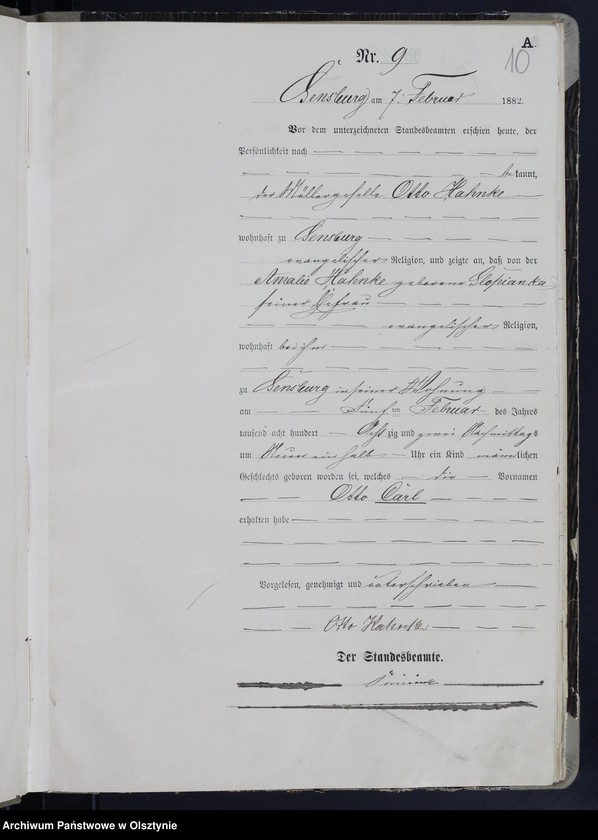 A.
10
Nr. 9
Sensburg am 7. Februar 1882.
Vor dem unterzeichneten Standesbeamten erschien heute, der
Persönlichkeit nach
bekannt,
der Müllergeselle Otto Hahnke
wohnhaft zu Sensburg
evangelischer Religion, und zeigte an, daß von der
Amalie Hahnke geborene
seiner Ehefrau
evangelischer Religion,
wohnhaft bei ihm
zu Sensburg in seiner Wohnung
am Fünften Februar des Jahres
tausend acht hundert Achtzig und zwei Nachmittags
um Neun einhalb Uhr ein Kind männlichen
Geschlechts geboren worden sei, welches die Vornamen
Otto Carl
erhalten habe
Vorgelesen, genehmigt und unterschrieben
Otto Hahnke
Der Standesbeamte.
Archiwum Państwowe w Olsztynie